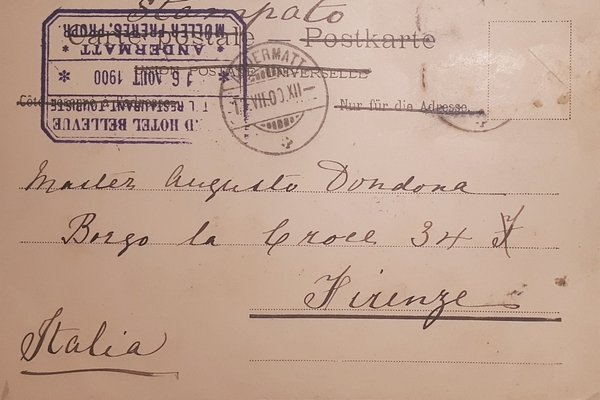 Stampato
Carte postale — Postkarte
UNION POSTALE UNIVERSELLE
Nur für die Adresse.
D HOTEL BELLEVUE
RESTAURANT TOURISTE
* 16 AOUT 1900 *
ANDERMATT
MÜLLER FRÈRES, PROPR
ANDERMATT
Master Augusto Dondona
Borgo la Croce 34
Firenze
Italia